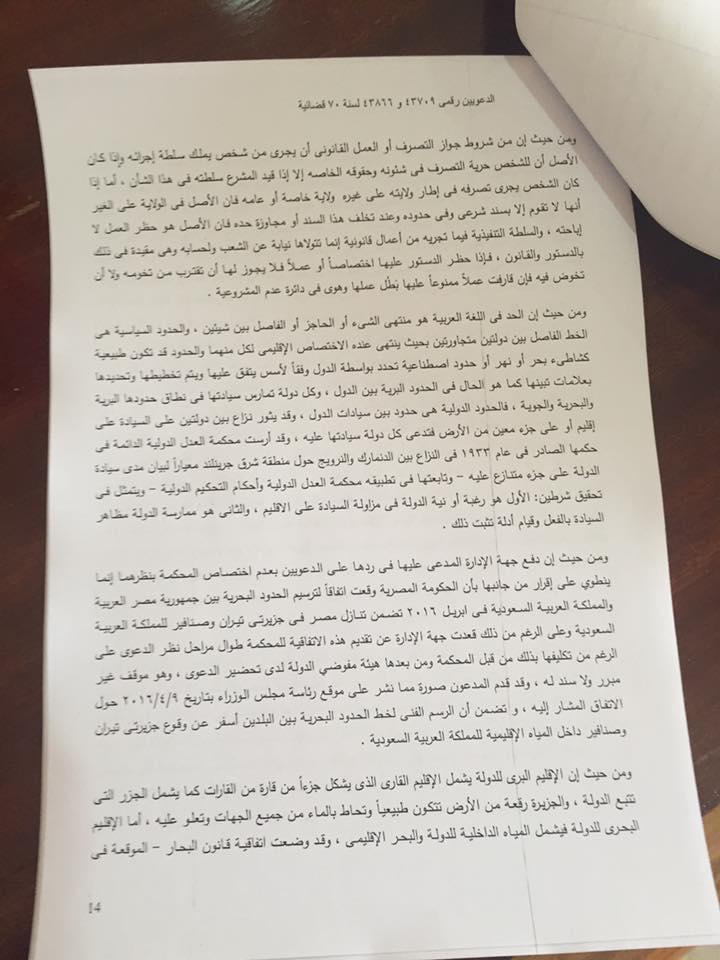 الدعويين رقمى ٤٣٧٠٩ و ٤٣٨٦٦ لسنة ٧٠ قضائية
ومن حيث إن من شروط جواز التصرف أو العمل القانونى أن يجرى من شخص يملك سلطة إجرائه وإذا كان
الأصل أن للشخص حرية التصرف فى شئونه وحقوقه الخاصه إلا إذا قيد المشرع سلطته فى هذا الشأن ، أما إذا
كان الشخص يجرى تصرفه فى إطار ولايته على غيره ولاية خاصة أو عامه فان الأصل فى الولاية على الغير
أنها لا تقوم إلا بسند شرعى وفى حدوده وعند تخلف هذا السند أو مجاوزة حده فان الأصل هو حظر العمل لا
إباحته ، والسلطة التنفيذية فيما تجريه من أعمال قانونية إنما تتولاها نيابة عن الشعب ولحسابه وهى مقيدة فى ذلك
بالدستور والقانون ، فإذا حظر الدستور عليها اختصاصاً أو عملاً فلا يجوز لها أن تقترب من تخومه ولا أن
تخوض فيه فإن قارفت عملاً ممنوعاً عليها بَطُل عملها وهوى فى دائرة عدم المشروعية .
ومن حيث إن الحد فى اللغة العربية هو منتهى الشىء أو الحاجز أو الفاصل بين شيئين ، والحدود السياسية هى
الخط الفاصل بين دولتين متجاورتين بحيث ينتهى عنده الاختصاص الإقليمى لكل منهما والحدود قد تكون طبيعية
كشاطىء بحر أو نهر أو حدود اصطناعية تحدد بواسطة الدول وفقاً لأسس يتفق عليها ويتم تخطيطها وتحديدها
بعلامات تبينها كما هو الحال فى الحدود البرية بين الدول ، وكل دولة تمارس سيادتها فى نطاق حدودها البرية
والبحرية والجوية ، فالحدود الدولية هى حدود بين سيادات الدول ، وقد يثور نزاع بين دولتين على السيادة على
إقليم أو على جزء معين من الأرض فتدعى كل دولة سيادتها عليه ، وقد أرست محكمة العدل الدولية الدائمة فى
حكمها الصادر فى عام ١٩٣٣ فى النزاع بين الدنمارك والنرويج حول منطقة شرق جرينلند معياراً لبيان مدى سيادة
الدولة على جزء متنازع عليه – وتابعتها فى تطبيقه محكمة العدل الدولية وأحكام التحكيم الدولية – ويتمثل فى
تحقيق شرطين: الأول هو رغبة أو نية الدولة فى مزاولة السيادة على الاقليم ، والثانى هو ممارسة الدولة مظاهر
السيادة بالفعل وقيام أدلة تثبت ذلك .
ومن حيث إن دفع جهة الإدارة المدعى عليها فى ردها على الدعويين بعدم اختصاص المحكمة بنظرهما إنما
ينطوي على إقرار من جانبها بأن الحكومة المصرية وقعت اتفاقاً لترسيم الحدود البحرية بين جمهورية مصر العربية
والمملكة العربية السعودية فى ابريل ٢٠١٦ تضمن تنازل مصر فى جزيرتى تيران وصنافير للمملكة العربية
السعودية وعلى الرغم من ذلك قعدت جهة الإدارة عن تقديم هذه الاتفاقية للمحكمة طوال مراحل نظر الدعوى على
الرغم من تكليفها بذلك من قبل المحكمة ومن بعدها هيئة مفوضي الدولة لدى تحضير الدعوى ، وهو موقف غير
مبرر ولا سند له ، وقد قدم المدعون صورة مما نشر على موقع رئاسة مجلس الوزراء بتاريخ ٢٠١٦/٤/٩ حول
الاتفاق المشار إليه ، و تضمن أن الرسم الفنى لخط الحدود البحرية بين البلدين أسفر عن وقوع جزيرتى تيران
وصنافير داخل المياه الإقليمية للمملكة العربية السعودية .
ومن حيث إن الإقليم البرى للدولة يشمل الإقليم القارى الذى يشكل جزءاً من قارة من القارات كما يشمل الجزر التى
تتبع الدولة ، والجزيرة رقعة من الأرض تتكون طبيعياً وتحاط بالماء من جميع الجهات وتعلو عليه ، أما الإقليم
البحرى للدولة فيشمل المياه الداخلية للدولة والبحر الإقليمى ، وقد وضعت اتفاقية قانون البحار – الموقعة فى
14